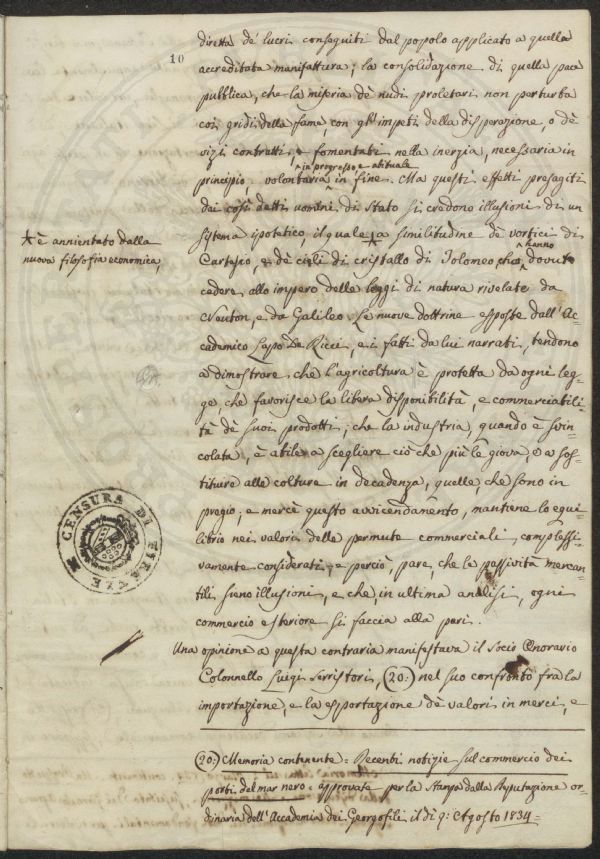 10
diretta de' lucri conseguiti dal popolo applicato a quella
accreditata manifattura; la consolidazione di quella pace
pubblica, che la miseria dè nudi proletari non perturba
coi gridi della fame, con gl'impeti della disperazione, o dè
vizi contratti, e fomentati nella inerzia, necessaria in
in progresso e abituale
principio volontaria in fine. Ma questi effetti presagiti
dai così detti uomini di Stato si credono illusioni di un
sistema ipotetico, il quale a similitudine dè vortici di
+ è annientato dalla
nuova filosofia economica,
hanno
Cartesio, e dè cieli di cristallo di Tolomeo, che dovuto
cedere allo impero delle leggi di natura rivelate da
Newton, e da Galileo. Le nuove dottrine esposte dall'Ac=
cademico Lapo De Ricci, e i fatti da lui narrati, tendono
a dimostrare che l'agricoltura è protetta da ogni leg=
ge, che favorisce la libera disponibilità, e commerciabili=
tà dè suoi prodotti; che la industria, quando è svin=
colata, è abile a scegliere ciò che più le giova, o a sos=
tituire alle colture in decadenza, quelle, che sono in
pregio; e mercè questo avvicendamento, mantiene lo equi=
librio nei valori delle permute commerciali, complessi=
vamente considerati; e perciò, pare, che la passività mercan=
tili sieno illusioni, e che, in ultima analisi, ogni
commercio esteriore si faccia alla pari.
CENSURA DI FIRENZE
Una opinione a questa contraria manifestava il Socio Onorario
Colonnello Luigi Serristori, (20:) nel suo confronto fra la
importazione, e la esportazione dè valori in merci, e
(20:) Memoria contenente = Recenti notizie sul commercio dei
porti del mar nero = approvate per la Stampa dalla Deputazione or=
dinaria dell'Accademia dei Georgofili, il dì 9: Agosto 1834=